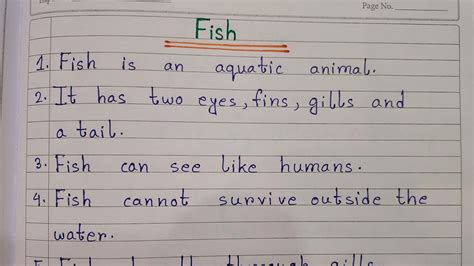 Page No.
Fish
1. Fish is an aquatic animal.
2. It has two eyes, fins, gills and
a tail.
3. Fish can see like humans.
4. Fish cannot survive outside the
water.
5. Fish through gills